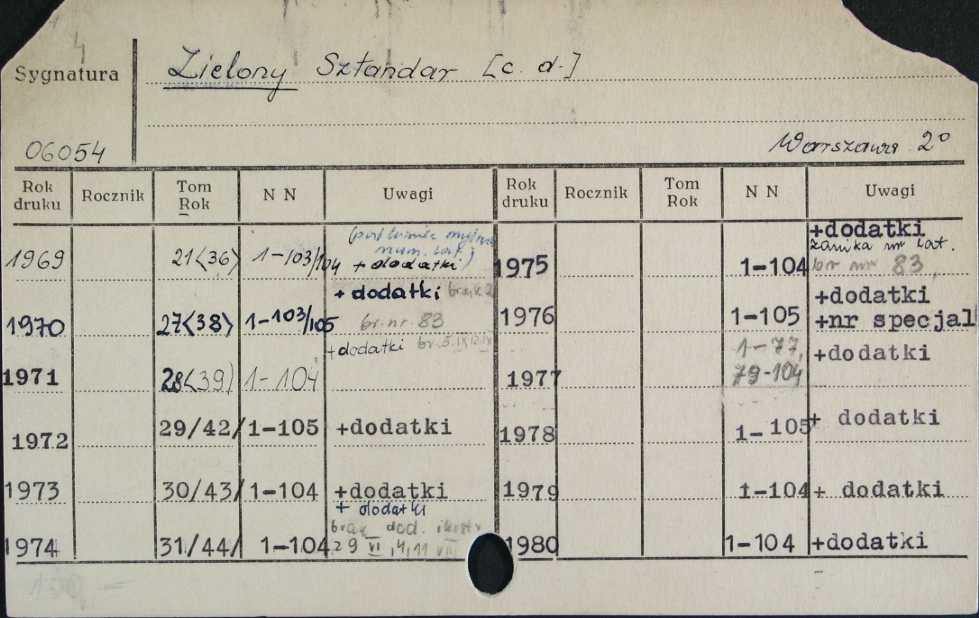 4
Sygnatura Zielony Sztandar [c. d.]
06054 Warszawa 2°
Rok druku Rocznik Tom Rok N N Uwagi Rok druku Rocznik Tom Rok N N Uwagi
1969 21<36) 1-103/104 num. lat.) + dodatki
1970 27<38> 1-103/105 + dodatki br. nr. 83
1971 28<39) 1-104 + dodatki
1972 29/42/ 1-105 +dodatki
1973 30/43/ 1-104 +dodatki
1974 31/44/ 1-104 + dodatki brak dod. 29 VI, 4, 11 VIII
1975 1-104 +dodatki zanika nr lat. br nr 83,
1976 1-105 +dodatki +nr specjal
1977 1-77, 79-104 +dodatki
1978 1-105 + dodatki
1979 1-104 + dodatki
1980 1-104 +dodatki